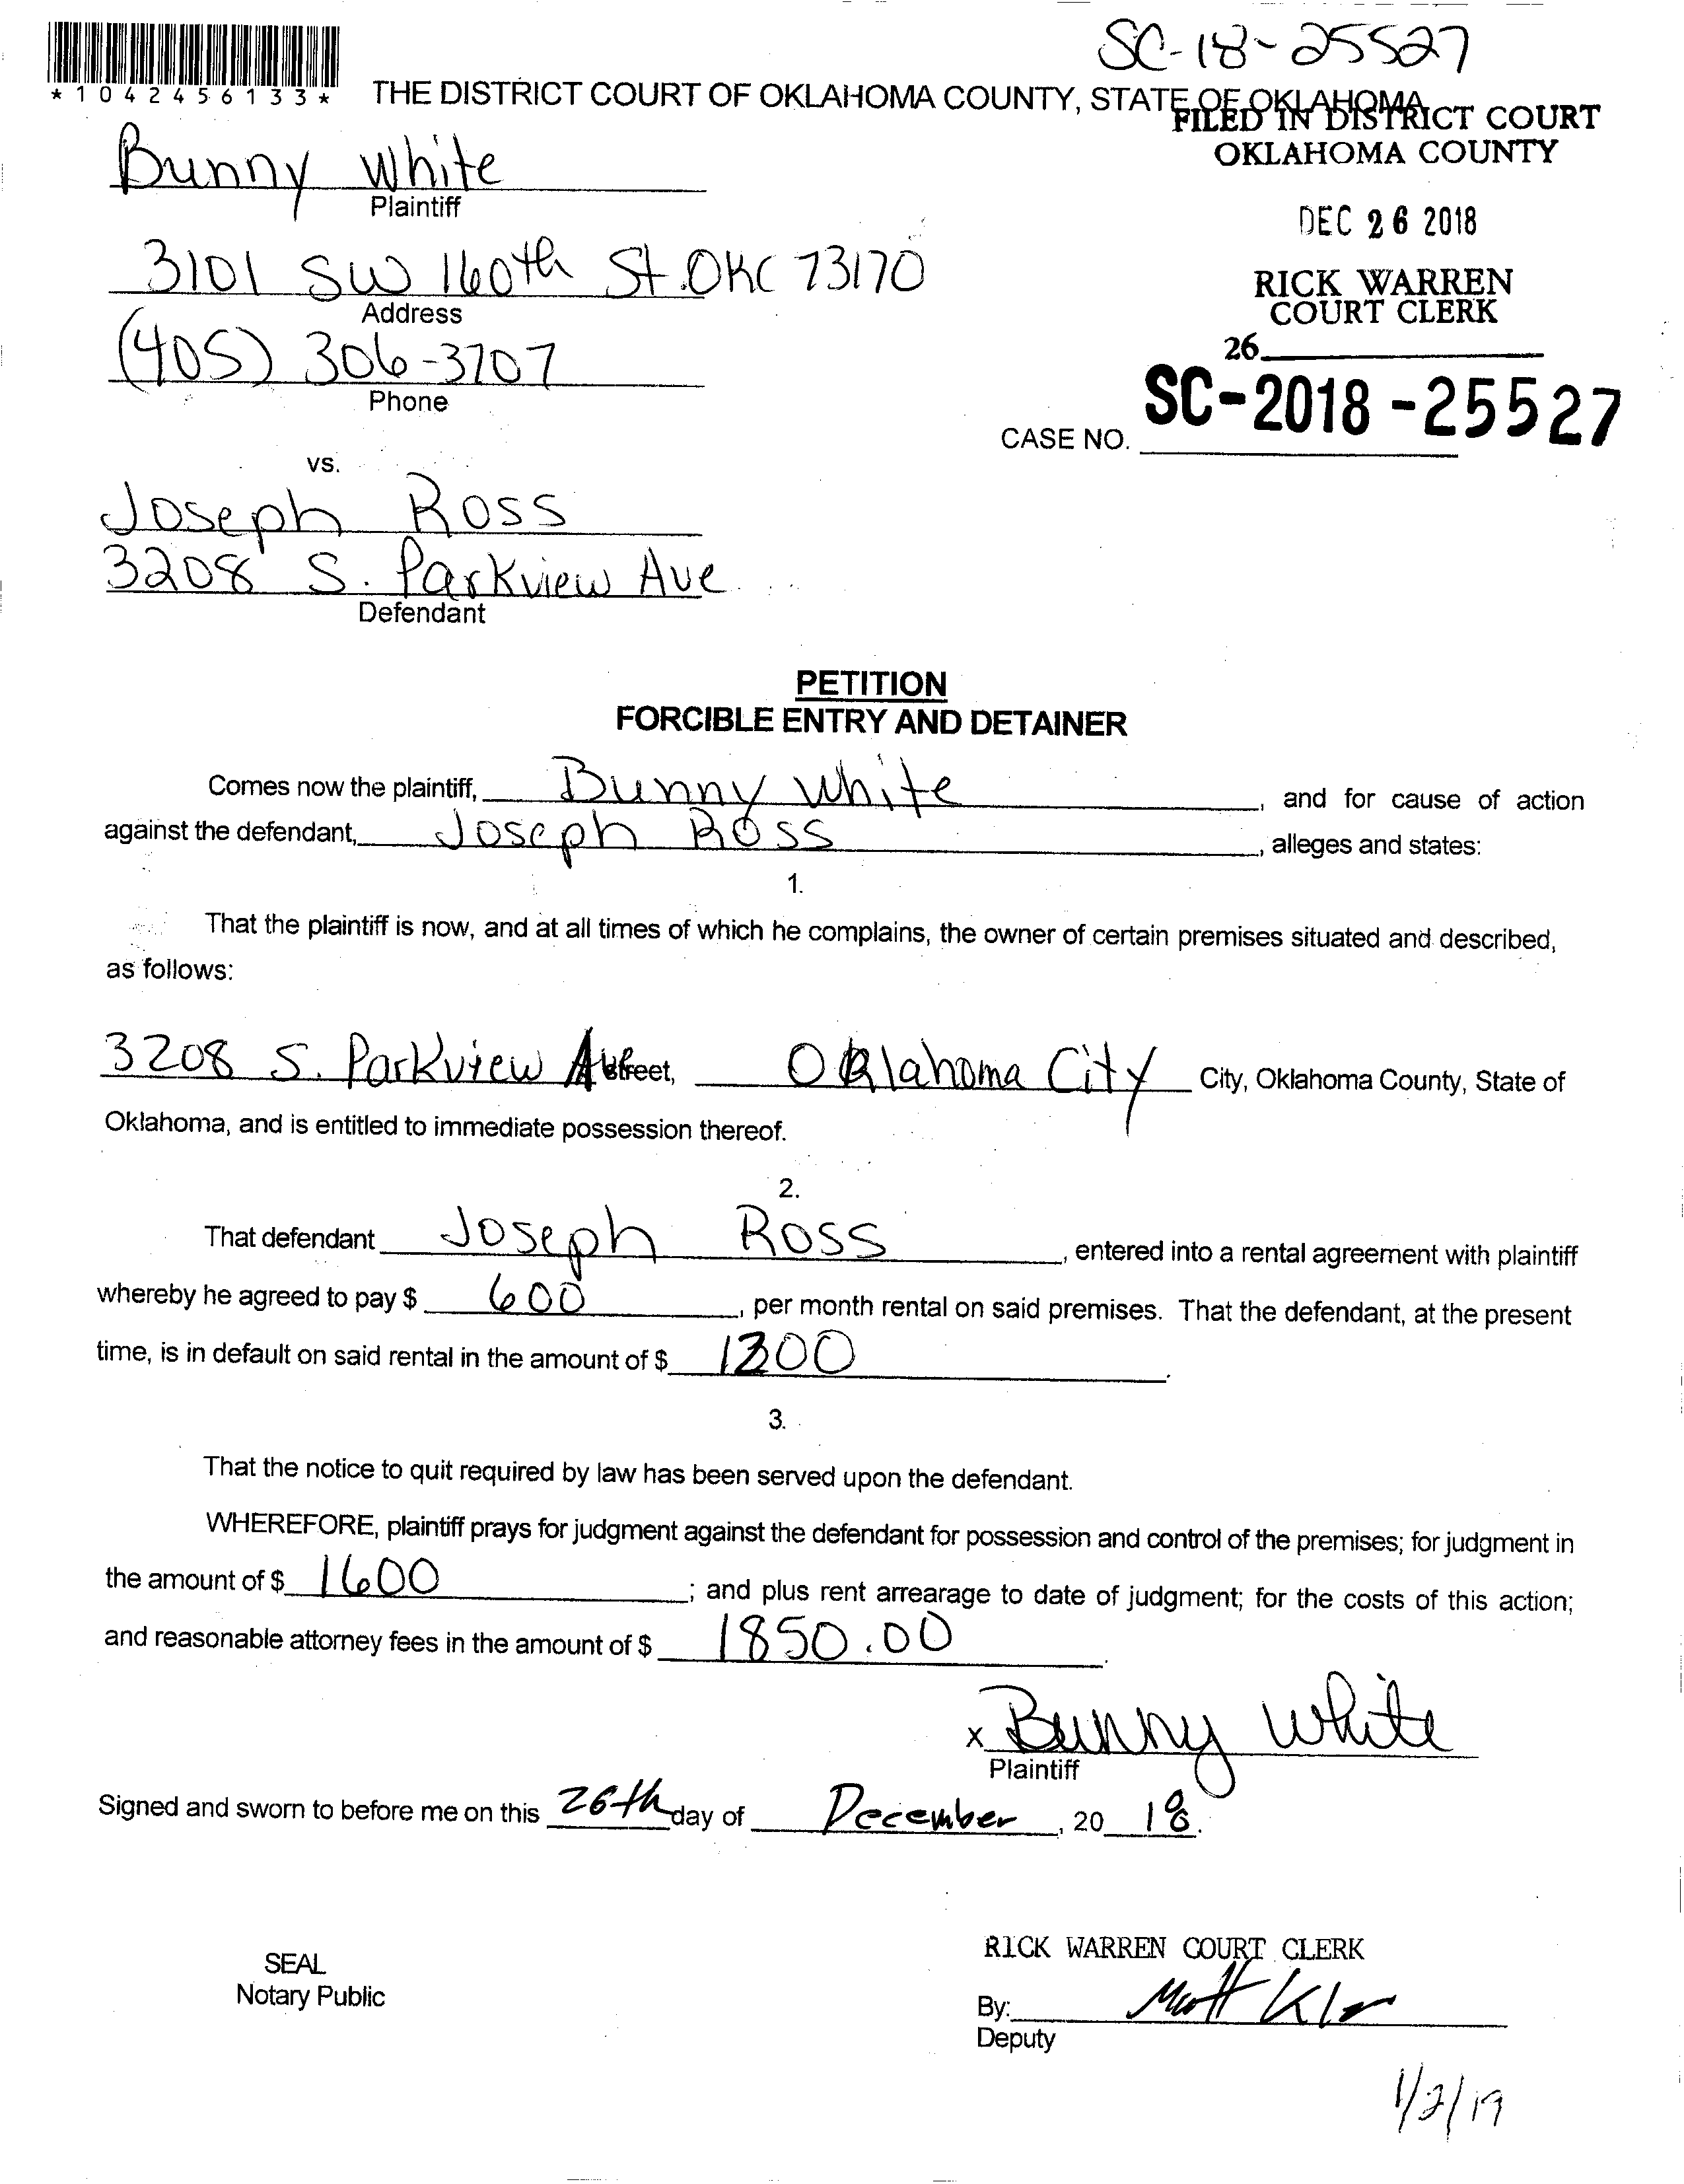 SC-18-25527
*1042456133*
THE DISTRICT COURT OF OKLAHOMA COUNTY, STATE OF OKLAHOMA
FILED IN DISTRICT COURT
OKLAHOMA COUNTY
Bunny White
Plaintiff
DEC 26 2018
3101 SW 160th St. OKC 73170
Address
RICK WARREN
COURT CLERK
(405) 306-3707
Phone
26
CASE NO. SC-2018-25527
vs.
Joseph Ross
3208 S. Parkview Ave
Defendant
PETITION
FORCIBLE ENTRY AND DETAINER
Comes now the plaintiff, Bunny White, and for cause of action
against the defendant, Joseph Ross, alleges and states:
1.
That the plaintiff is now, and at all times of which he complains, the owner of certain premises situated and described,
as follows:
3208 S. Parkview Street, Oklahoma City City, Oklahoma County, State of
Oklahoma, and is entitled to immediate possession thereof.
2.
That defendant Joseph Ross, entered into a rental agreement with plaintiff
whereby he agreed to pay $ 600, per month rental on said premises. That the defendant, at the present
time, is in default on said rental in the amount of $
3.
That the notice to quit required by law has been served upon the defendant.
WHEREFORE, plaintiff prays for judgment against the defendant for possession and control of the premises; for judgment in
the amount of $ 1600; and plus rent arrearage to date of judgment; for the costs of this action;
and reasonable attorney fees in the amount of $ 1850.00.
x Bunny White
Plaintiff
Signed and sworn to before me on this 26th day of December, 2018.
SEAL
Notary Public
RICK WARREN COURT CLERK
By: Matt
Deputy
1/2/19